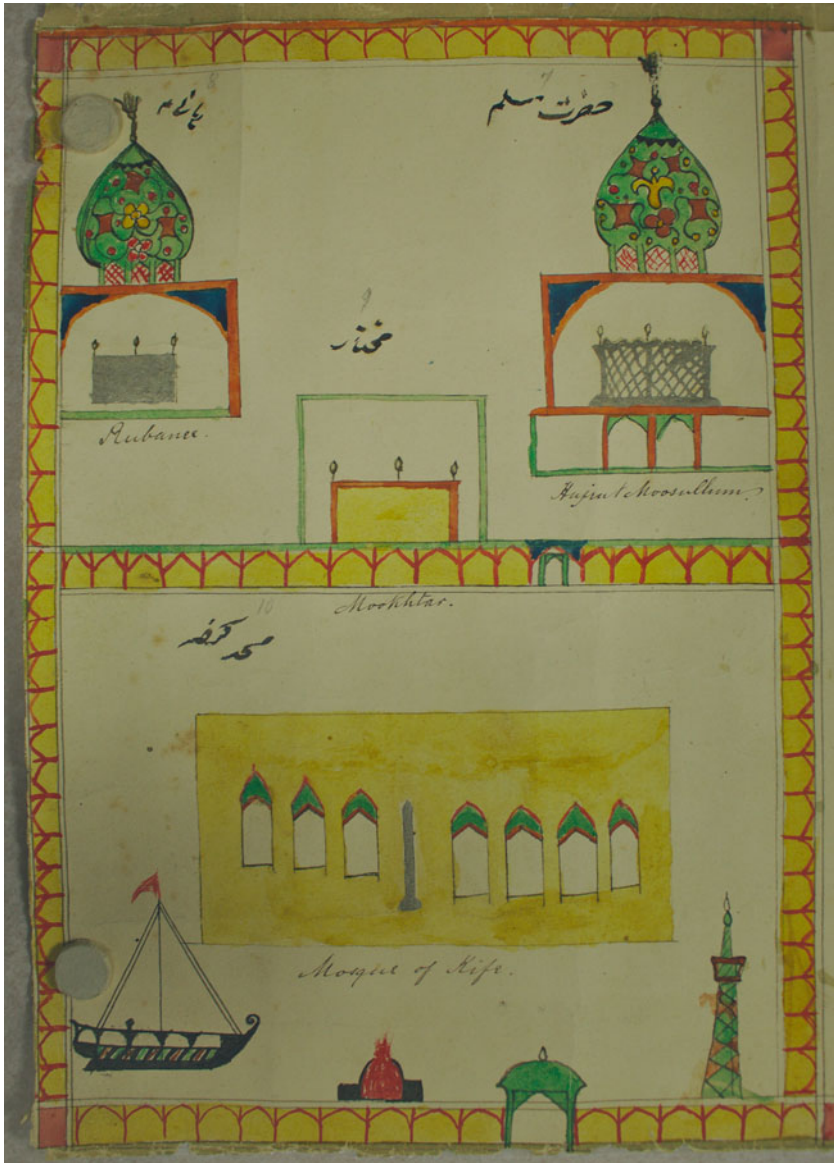 8
7
حضرت مسلم
9
مختار
Rubanee.
Hujrut Moosullum.
Mookhtar.
10
مسجد کوفہ
Mosque of Kife.